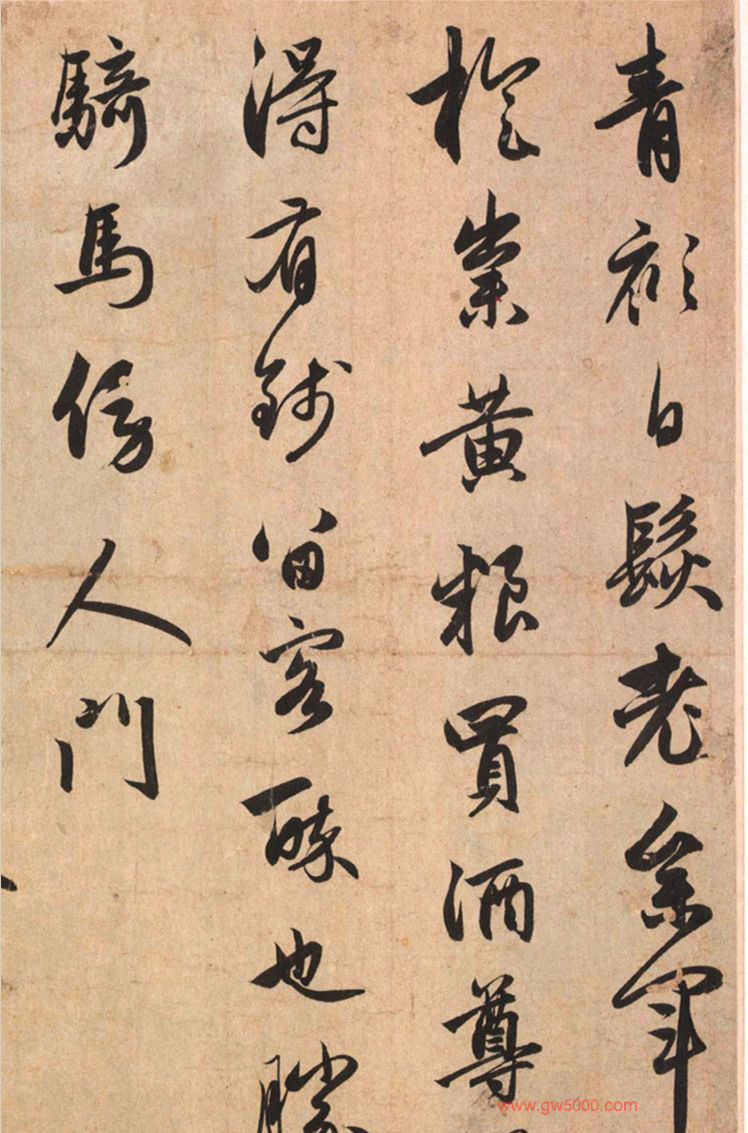 青衫白髮老參軍
旋粜黃粮買酒尊
得有錢留客醉也勝
騎馬傍人門
www.gw5000.com